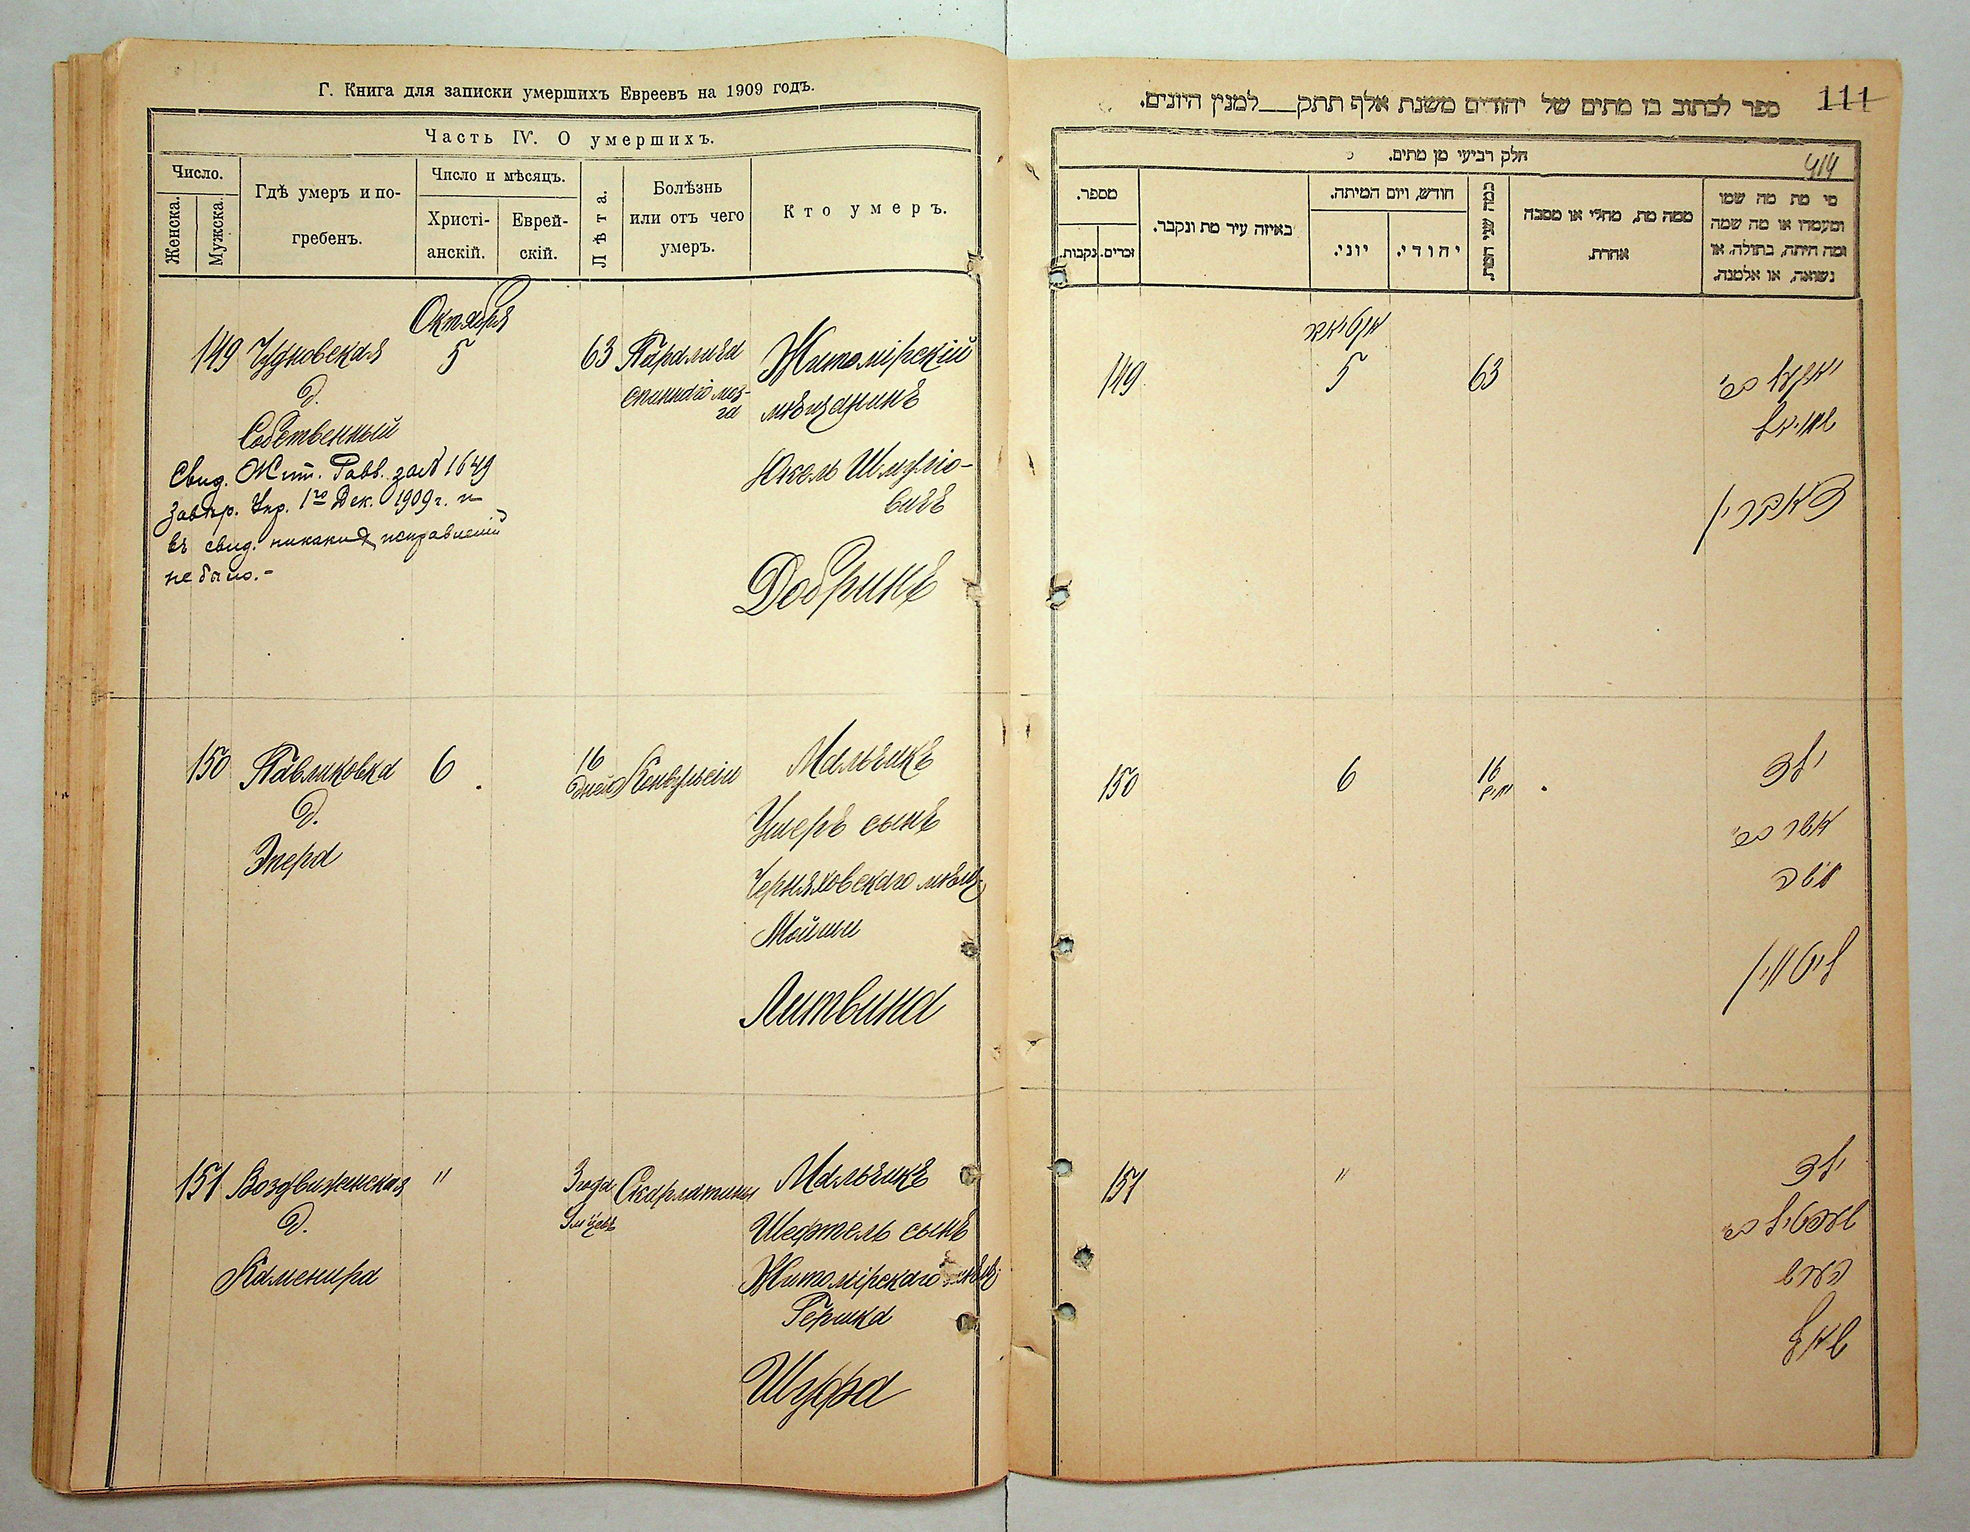 Г. Книга для записки умершихъ Евреевъ на 1909 годъ.
Часть IV. О умершихъ.
Число.
Женска.
Мужска.
Гдѣ умеръ и по-
гребенъ.
Число и мѣсяцъ.
Христі-
анскій.
Еврей-
скій.
Лѣта.
Болѣзнь
или отъ чего
умеръ.
Кто умеръ.
Октября
149 Чудновская 5 63 Паралича Житомірскій
д. спинного моз-
га мѣщанинъ
Собственный
Свид. Жит. Равв. за № 1649
Юкель Шмуліо-
вичъ
завѣр. Упр. 1го Дек. 1909 г. и
въ свид. никакихъ исправленій
не было.-
Добринъ
150 Павликовка 6 16 дней Конвульсіи Мальчикъ
д. Ушеръ сынъ
Черняховскаго мѣщ.
Мойши
Литвина
151 Воздвиженская " 3 года Скарлатины Мальчикъ
д. Шефтель сынъ
Каменира Житомірскаго мѣщ.
Гершка
Шуфа
111
414
ספר לכתוב בו מתים של יהודים משנת אלף תתק___למנין היונים.
חלק רביעי מן מתים.
מי מת מה שמו
ומעמדו או מה שמה
ומה היתה, בתולה, או
נשואה, או אלמנה.
ממה מת, מחלי או מסבה
אחרת.
כמה שני המת.
חודש, ויום המיתה.
יהודי.
יוני.
באיזה עיר מת ונקבר.
מספר.
זכרים.
נקבות.
149 5 63
שמואל
דאברין
150 6 16 ילד
אשר בר'
משה
ליטווין
151 " ילד
שעפטיל בר'
הערש